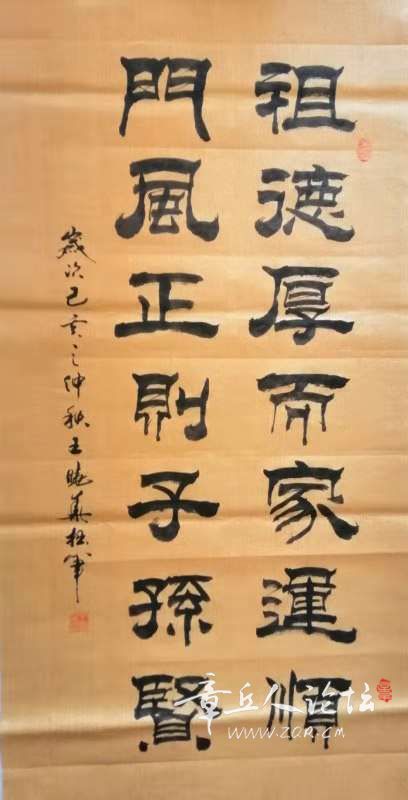 祖德厚而家運順
門風正則子孫賢
歲次己亥之仲秋王曉
章丘人论坛
www.ZQR.CM